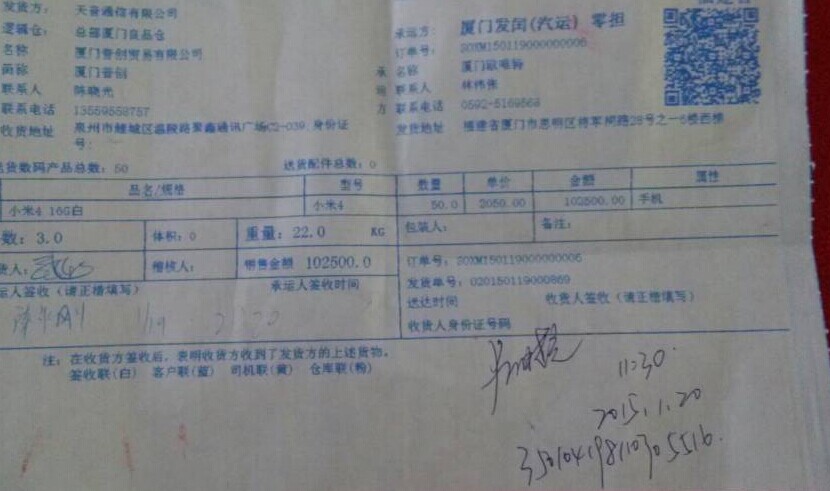 发货方: 天音通信有限公司
逻辑仓: 总部厦门良品仓
名称 厦门普创贸易有限公司
简称 厦门普创
联系人 陈晓光
联系电话 13559558757
收货地址 泉州市鲤城区温陵路聚鑫通讯广场C2-039.身份证
号:
承运方: 厦门发闵(汽运) 零担
订单号: SOXM150119000000006
承运方
名称 厦门欧唯特
联系人 林炜伟
联系电话 0592-5169568
发货地址 福建省厦门市思明区将军祠路28号之一6楼西梯
送货数码产品总数: 50 送货配件总数: 0
品名/规格 型号 数量 单价 金额 属性
小米4 16G白 小米4 50.0 2050.00 102500.00 手机
数: 3.0 体积: 0 重量: 22.0 KG 包装人: 备注:
货人: 稽核人: 销售金额 102500.0
订单号: SOXM150119000000006
发货单号: 020150119000869
运人签收 (请正楷填写) 承运人签收时间
送达时间 收货人签收 (请正楷填写)
1/19
收货人身份证号码
注: 在收货方签收后, 表明收货方收到了发货方的上述货物。
签收联(白) 客户联(蓝) 司机联(黄) 仓库联(粉)
11:30
2015.1.20
350104198110305516.